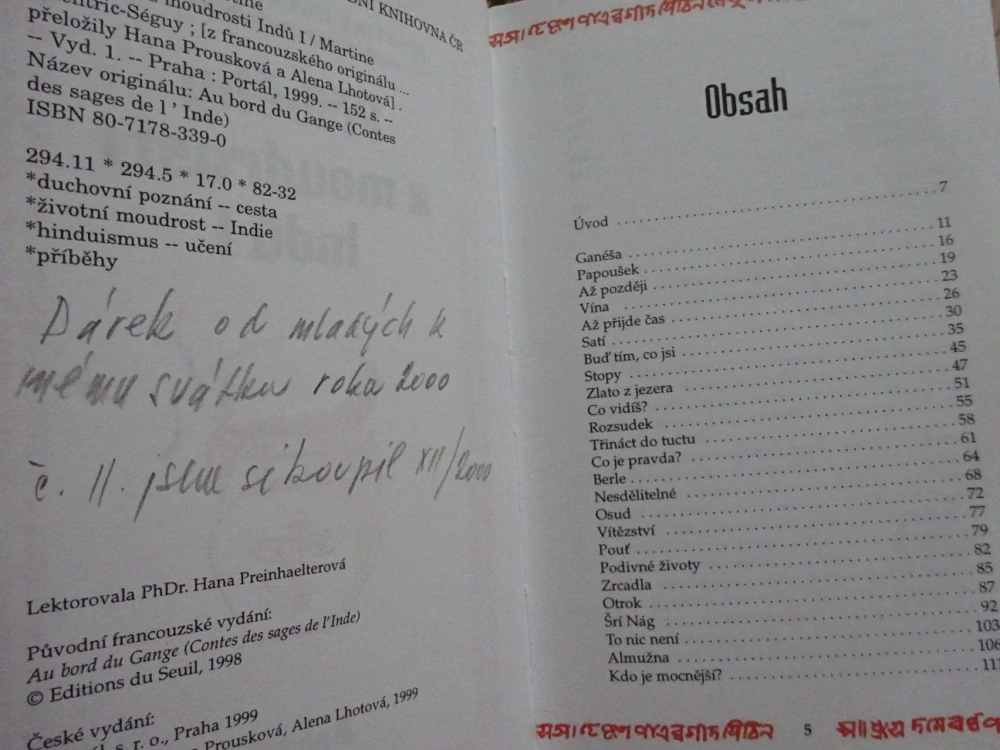 DNÍ KNIHOVNA ČR
moudrosti Indů I / Martine
entric-Séguy ; [z francouzského originálu ...
přeložily Hana Prousková a Alena Lhotová] .
-- Vyd. 1. -- Praha : Portál, 1999. -- 152 s. --
Název originálu: Au bord du Gange (Contes
des sages de l ' Inde)
ISBN 80-7178-339-0
294.11 * 294.5 * 17.0 * 82-32
*duchovní poznání -- cesta
*životní moudrost -- Indie
*hinduismus -- učení
*příběhy
Dárek od mladých k
mému svátku roka 2000
č. II. jsem si koupil XII/2000
Lektorovala PhDr. Hana Preinhaelterová
Původní francouzské vydání:
Au bord du Gange (Contes des sages de l'Inde)
© Editions du Seuil, 1998
České vydání:
s. r. o., Praha 1999
Prousková, Alena Lhotová, 1999
Obsah
Úvod 7
Ganéša 11
Papoušek 16
Až později 19
Vína 23
Až přijde čas 26
Satí 30
Buď tím, co jsi 35
Stopy 45
Zlato z jezera 47
Co vidíš? 51
Rozsudek 55
Třináct do tuctu 58
Co je pravda? 61
Berle 64
Nesdělitelné 68
Osud 72
Vítězství 77
Pouť 79
Podivné životy 82
Zrcadla 85
Otrok 87
Šrí Nág 92
To nic není 103
Almužna 106
Kdo je mocnější? 111
5